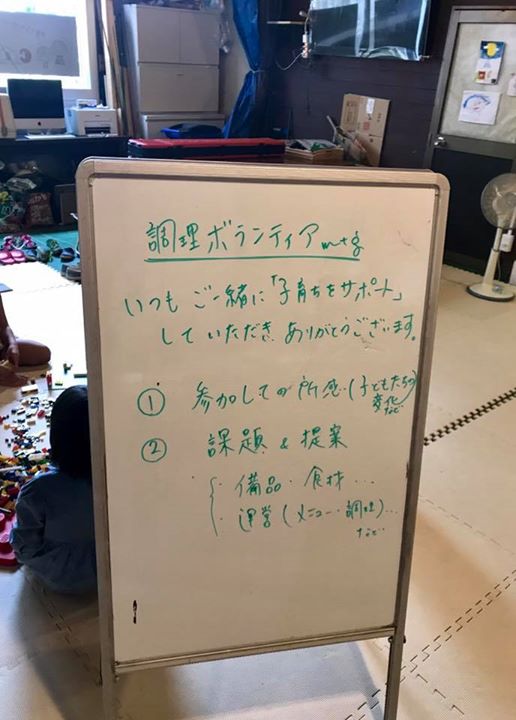 調理ボランティア mtg
いつも ご一緒に「子育ちをサポート」
していただき ありがとうございます。
① 参加しての所感 (子どもたちの
変化
など)
② 課題 & 提案
・備品・食材…
・運営 (メニュー・調理)…
など